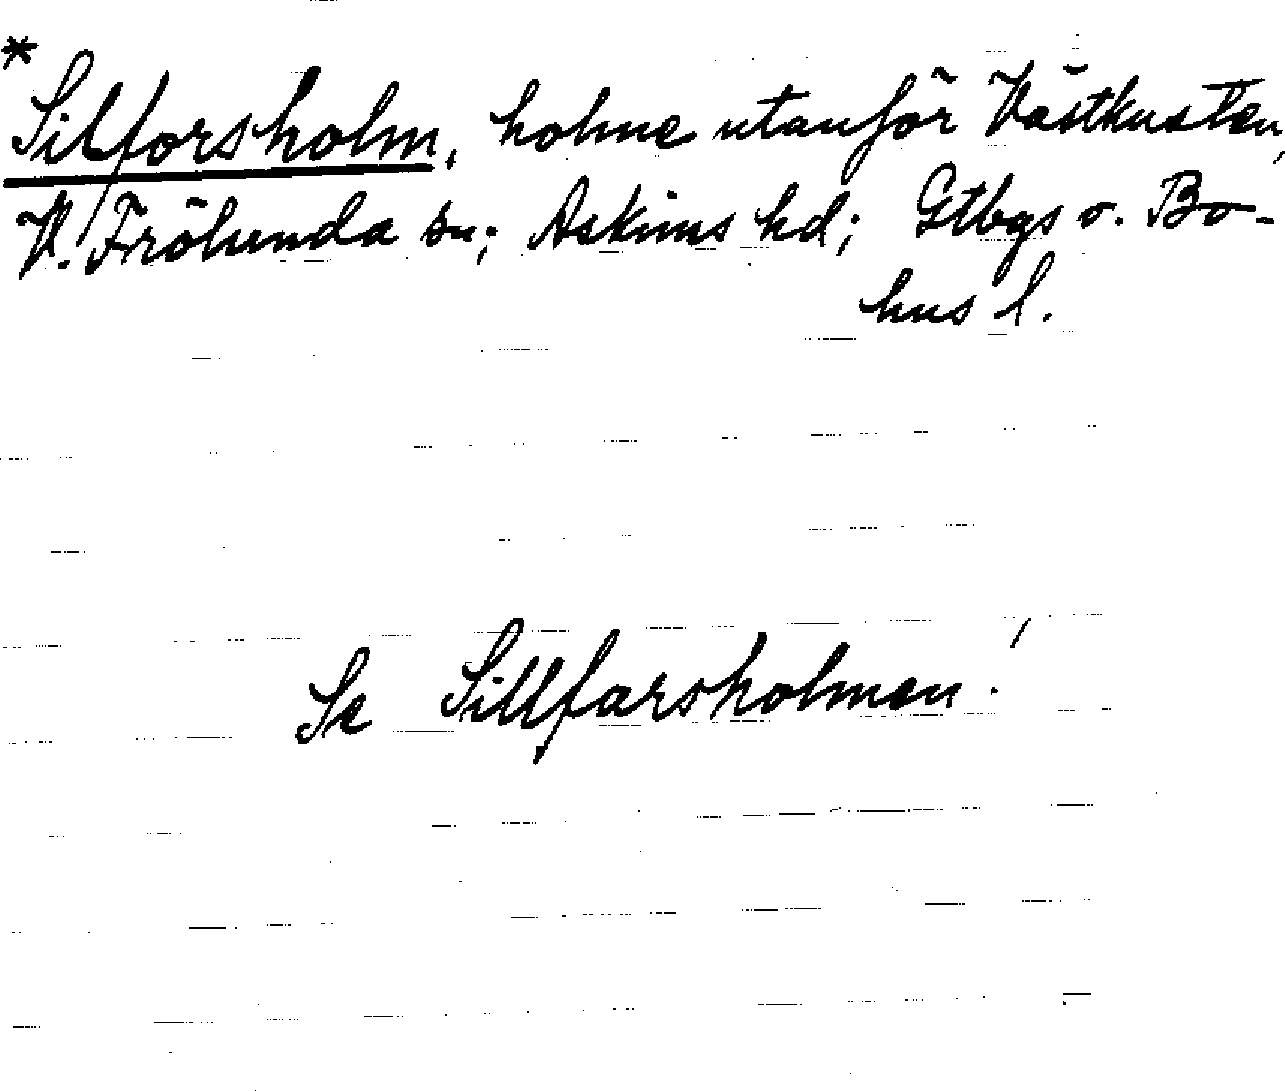 * Silforsholm, holme utanför Västkusten,
V. Frölunda sn; Askims hd; Gtbgs o. Bo-
hus l.
Se Sillfarsholmen!